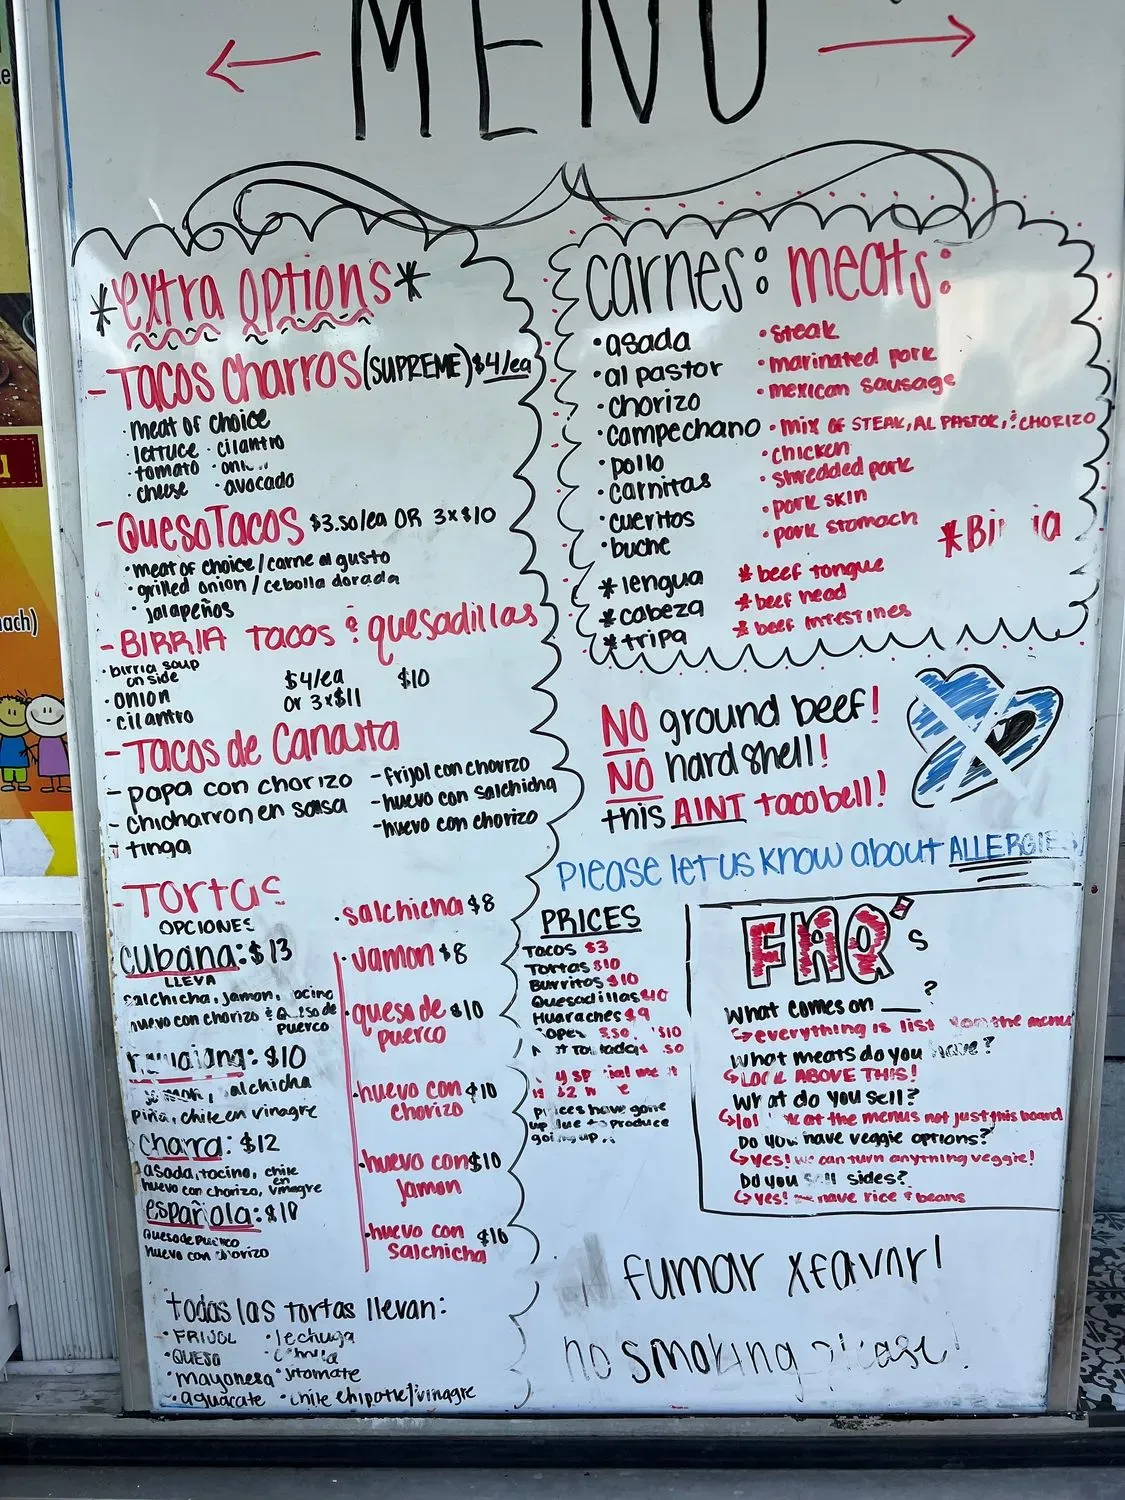 MENU
*extra options*
- Tacos Charros (SUPREME) $4/ea
· meat of choice
· lettuce · cilantro
· tomato
· cheese · avocado
- Queso Tacos $3.50/ea OR 3x$10
· meat of choice / carne al gusto
· grilled onion / cebolla dorada
· jalapeños
- BIRRIA tacos & quesadillas
· birria soup on side
· onion
· cilantro
$4/ea
or 3x$11
$10
- Tacos de Canasta
- papa con chorizo
- chicharron en salsa
- tinga
- frijol con chorizo
- huevo con salchicha
- huevo con chorizo
- Tortas
OPCIONES
cubana: $13
LLEVA
salchicha, jamon,
huevo con chorizo & queso de
puerco
$10
piña, chile en vinagre
charra: $12
asada, tocino, chile en
huevo con chorizo, vinagre
española:
queso de puerco
huevo con chorizo
· salchicha $8
· jamon $8
· queso de puerco $10
· huevo con chorizo $10
· huevo con jamon $10
· huevo con salchicha
todas las tortas llevan:
· FRIJOL · lechuga
· QUESO
· mayonesa · jitomate
· aguacate · chile chipotle/vinagre
carnes: meats:
· asada · steak
· al pastor · marinated pork
· chorizo · mexican sausage
· campechano · mix of STEAK, AL PASTOR, & CHORIZO
· pollo · chicken
· carnitas · shredded pork
· cueritos · pork skin
· buche · pork stomach
* lengua * beef tongue
* cabeza * beef head
* tripa * beef intestines
NO ground beef!
NO hard shell!
this AINT taco bell!
Please let us know about ALLERGIES
PRICES
Tacos $3
Tortas $10
Burritos $10
Quesadillas
Huaraches $9
$10
prices have gone
up due to produce
going up
FAQ's
What comes on ___?
everything is list the menu
What meats do you have?
LOOK ABOVE THIS!
What do you sell?
lol at the menus not just this board
Do you have veggie options?
yes! we can turn anything veggie!
Do you sell sides?
yes! we have rice & beans
fumar xfavor!
no smoking please!